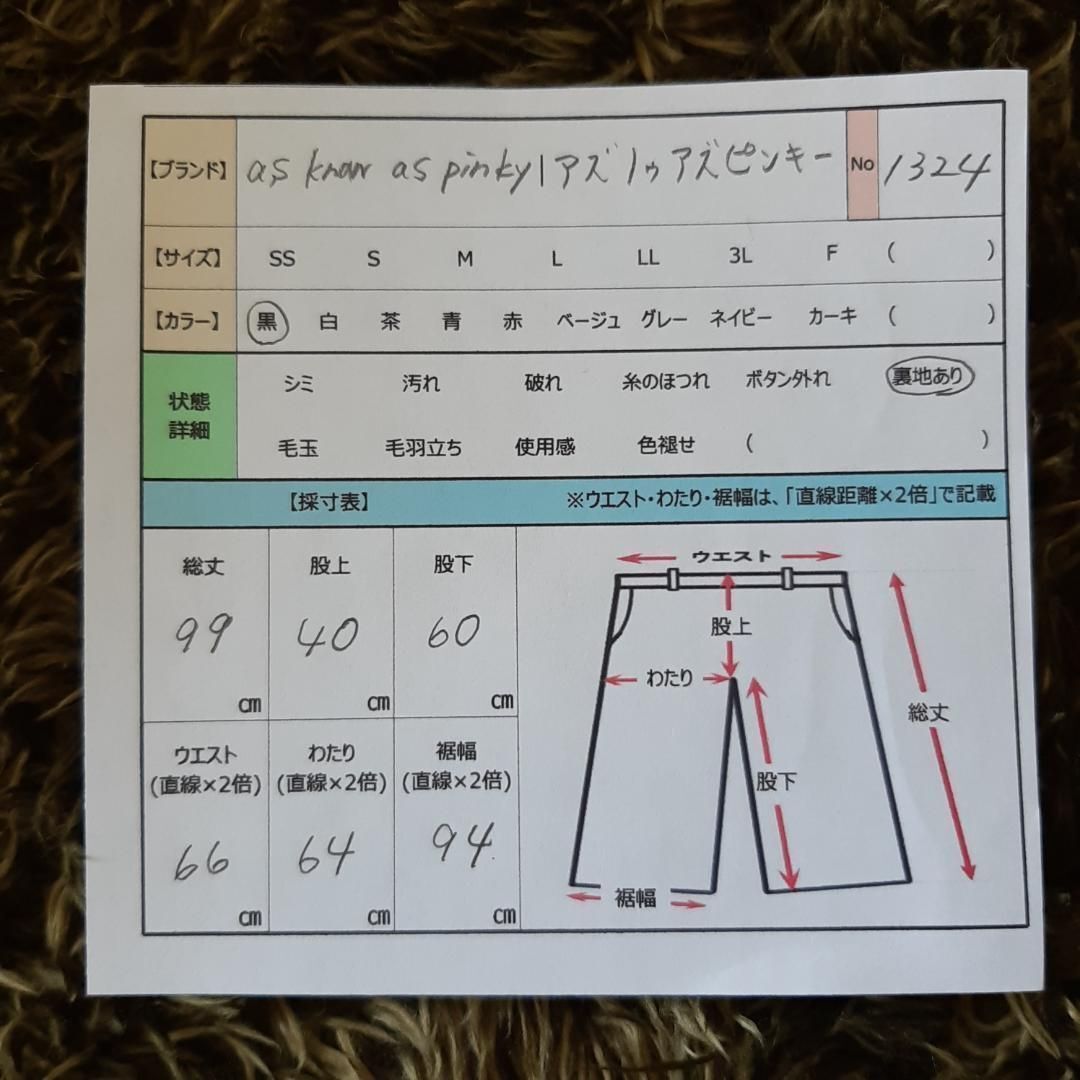 【ブランド】 as know as pinky / アズノゥアズピンキー No 1324
【サイズ】 SS S M L LL 3L F ( )
【カラー】 黒 白 茶 青 赤 ベージュ グレー ネイビー カーキ ( )
状態詳細
シミ 汚れ 破れ 糸のほつれ ボタン外れ 裏地あり
毛玉 毛羽立ち 使用感 色褪せ ( )
【採寸表】 ※ウエスト・わたり・裾幅は、「直線距離×2倍」で記載
総丈 股上 股下
99 40 60
cm cm cm
ウエスト わたり 裾幅
(直線×2倍) (直線×2倍) (直線×2倍)
66 64 94
cm cm cm
ウエスト
股上
わたり
総丈
股下
裾幅